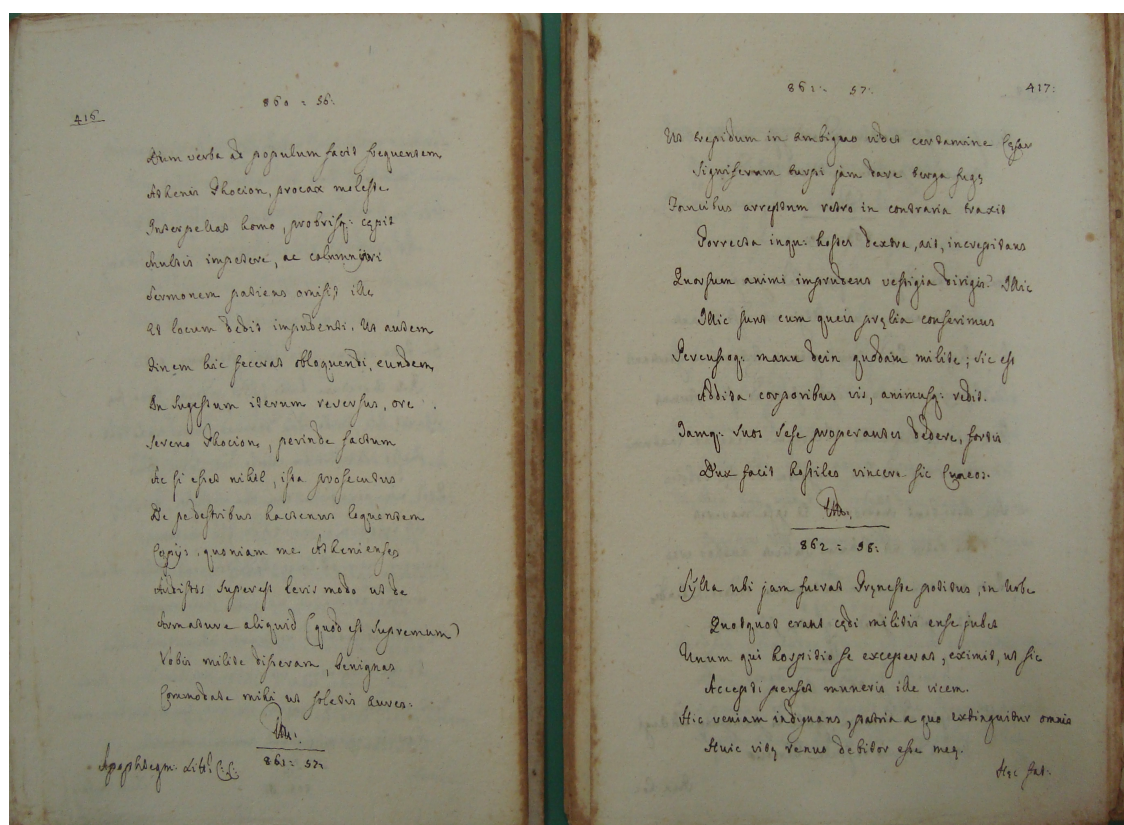 416
860 : 56:
Dum verba ad populum facit frequentem
Athenis Phocion, procax moleste
Interpellat homo, probrisq: cępit
Multis impetere, ac calumniari
Sermonem patiens omisit ille
Et locum dedit impudenti. Ut autem
Finem hic fecerat obloquendi, eundem
In sugestum iterum reversus, ore
Sereno Phocion, perinde factum
Ac si esset nihil, ista prosecutus
De pedestribus hactenus loquentem
Copijs quoniam me Athenienses
Audistis superest levis modo ut de
Armature aliquid (quod est supremum)
Vobis milite disseram, benignas
Commodate mihi ut soletis aures:
861: 57:
Apophtegm: Lib:
861: 57: 417:
Ut trepidum in ambiguo videt certamine Cęsar
Signiferum turpi jam dare terga fugę
Faucibus arreptum retro in contraria traxit
Porrecta inqu: hostes dextra, ait, increpitans
Quorsum animi imprudens vestigia dirigis? Illic
Illic sunt cum queis pręlia conserimus
Percussoq: manu dein quodam milite; sic est
Addita corporibus vis, animusq: redit.
Iamq: suos sese properantes dedere, fortis
Dux facit hostiles vincere sic cuneos:
862 : 58:
Sylla ubi jam fuerat Pręneste potitus, in Urbe
Quotquot erant cędi militis ense jubet
Unum qui hospitio se exceperat, eximit, ut sic
Accepti penset muneris ille vicem.
Hic veniam indignans, patria a quo extinguitur omnis
Huic vitę renuo debitor esse meę.
Hęc fat: